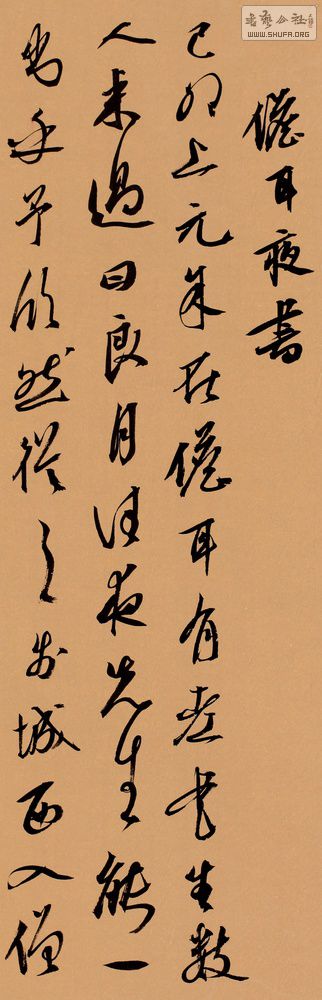 儋耳夜書
己卯上元余在儋耳有老书生數
人来過曰良月佳夜先生能一
出乎予欣然從之步城西入僧
WWW.SHUFA.ORG